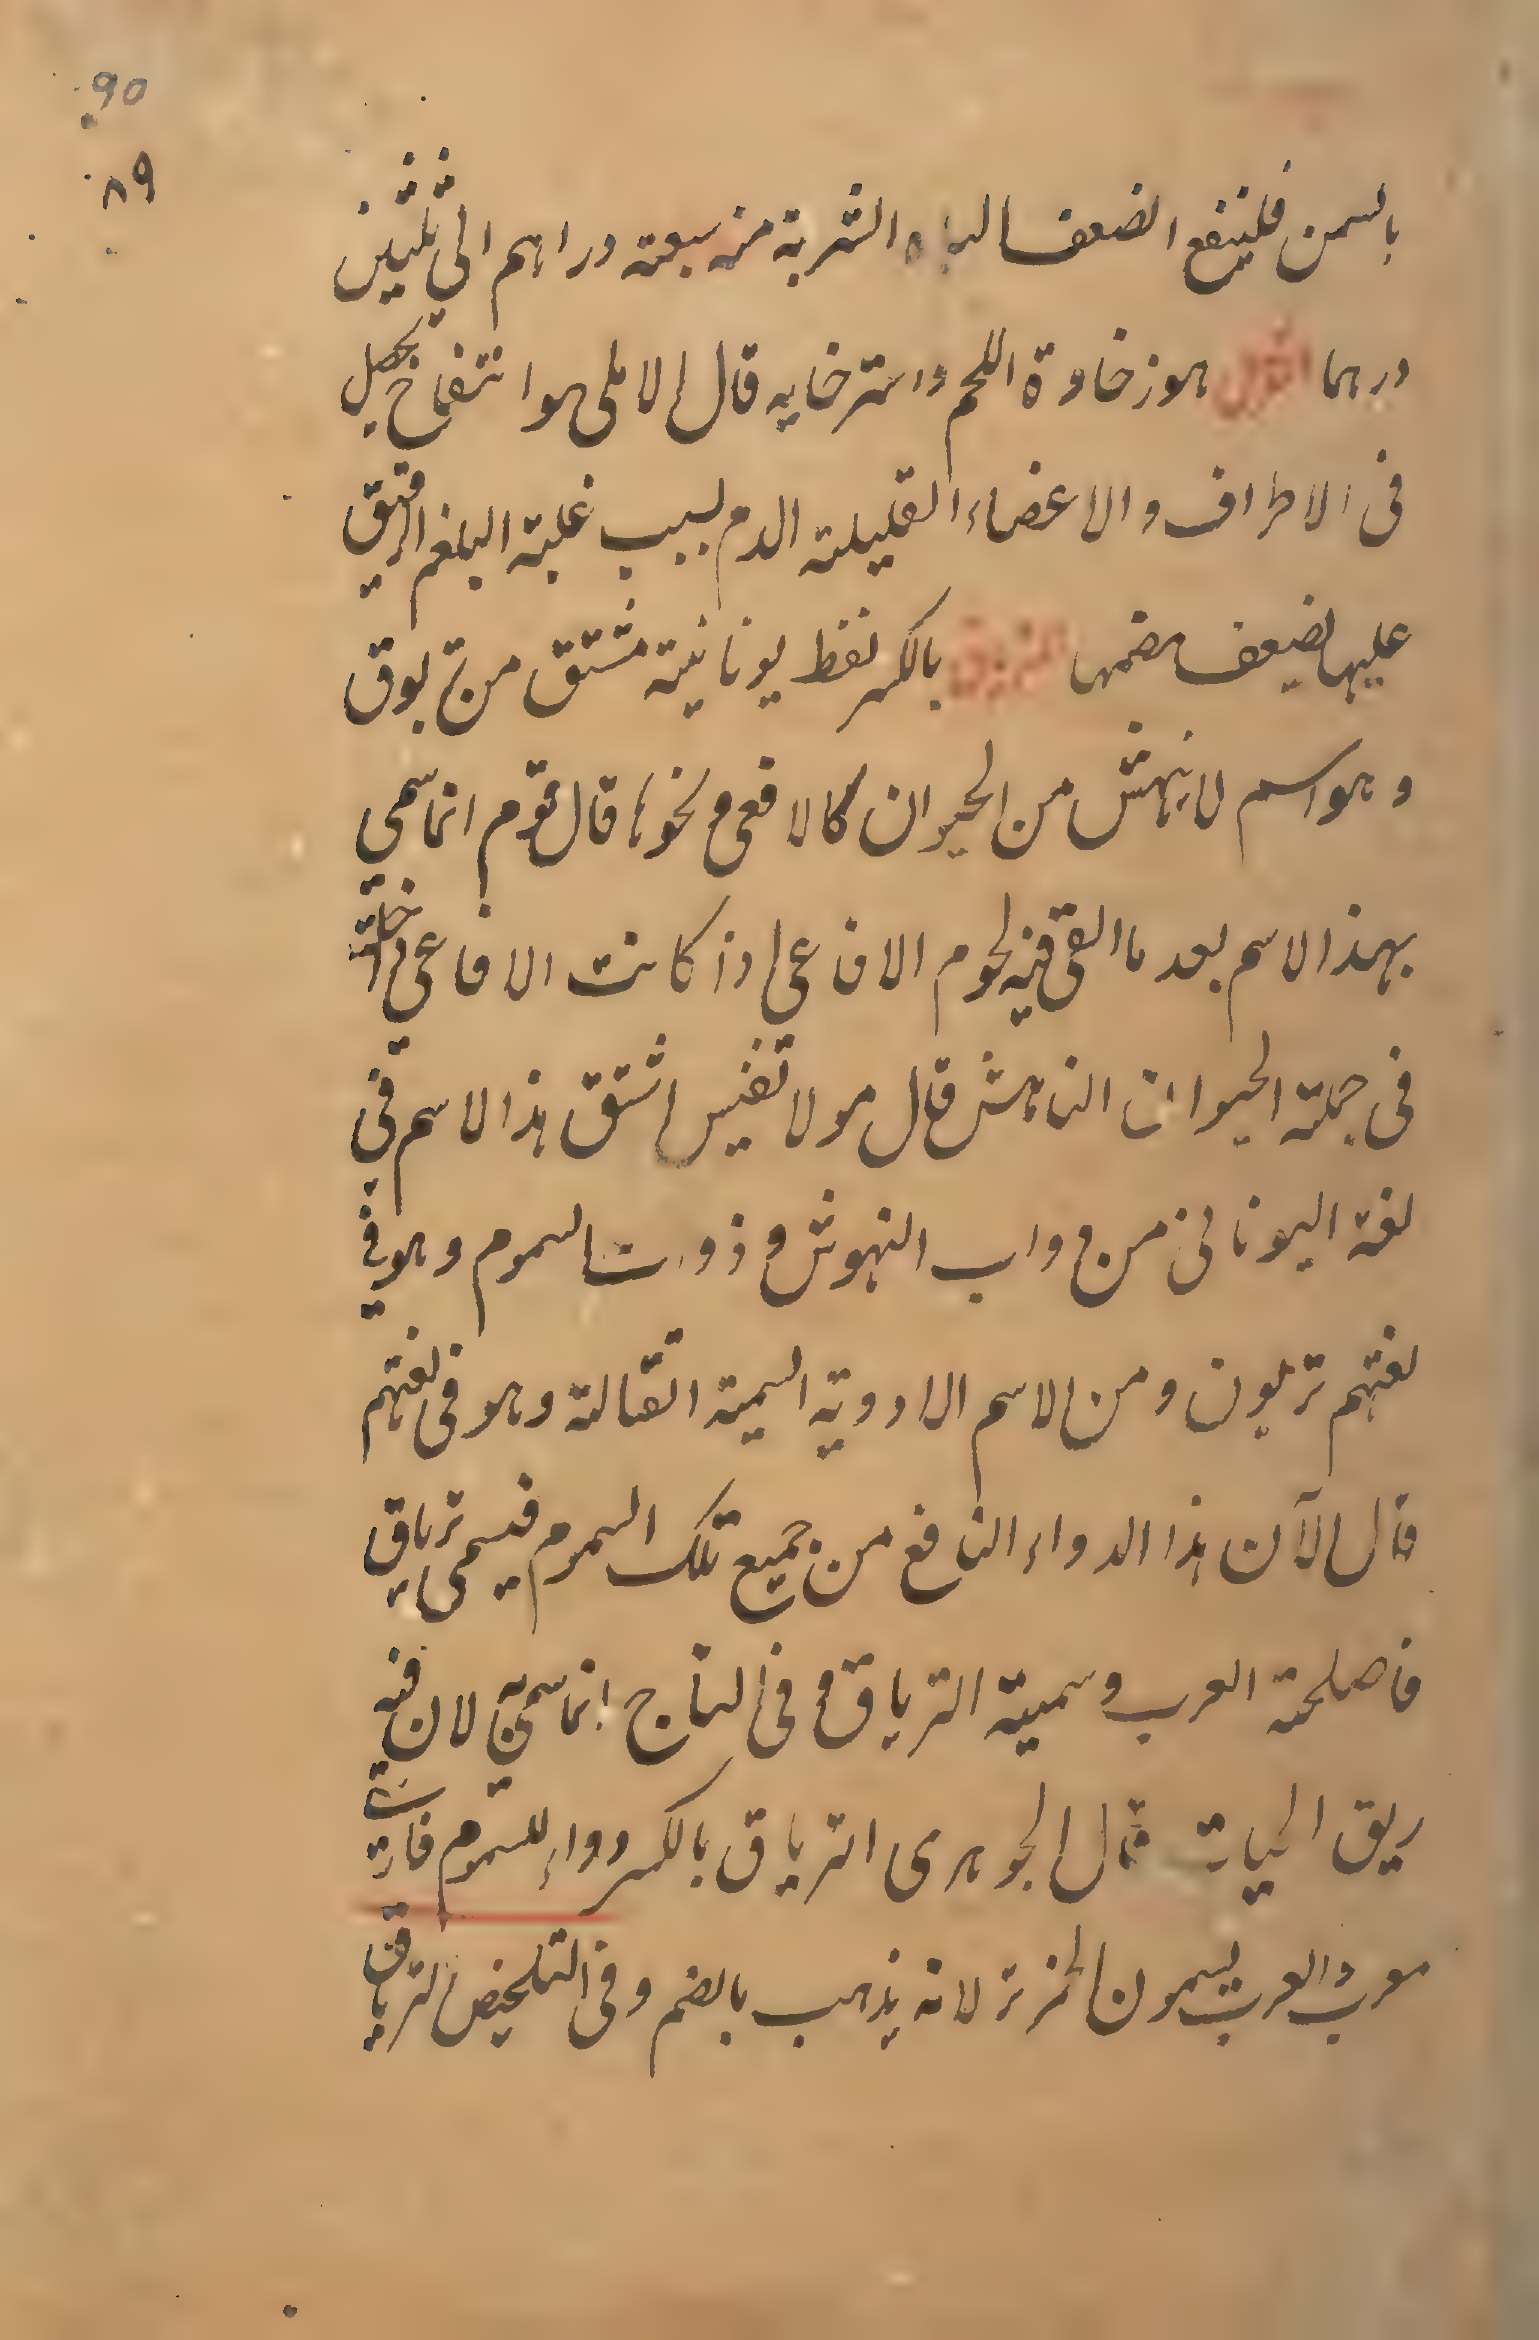 90
٨٩
بالسمن فلينفع الضعف الباه الشربة منه سبعة دراهم الي ثلثين
درهما هو رخاوة اللحم واسترخايه قال الاملي هو انتفاخ يحصل
في الاطراف والاعضاء القليلة الدم بسبب غلبة البلغم الرقيق
عليها لضعف هضمها بالكسر لفظ يونانية مشتق من تريوق
وهو اسم لما ينهش من الحيوان كالافعي ونحوها قال قوم انما سمي
بهذا الاسم بعد ما القي فيه لحوم الافاعي اذ كانت الافاعي داخلة
في جملة الحيوان الناهش قال مولا نفيس اشتق هذا الاسم في
لغة اليوناني من دواب النهوش وذوات السموم وهو في
لغتهم تريون ومن الاسم الادوية السمية القتالة وهو في لغتهم
قال الآن هذا الدواء النافع من جميع تلك السموم فيسمي ترياق
فاصلحته العرب وسميته الترياق وفي التاج انما سمي به لان فيه
ريق الحيات قال الجوهري الترياق بالكسر دواء للسموم فارسي
معرب والعرب يسمون الخمر تر لانه يذهب بالضم وفي التلخيص الترياق